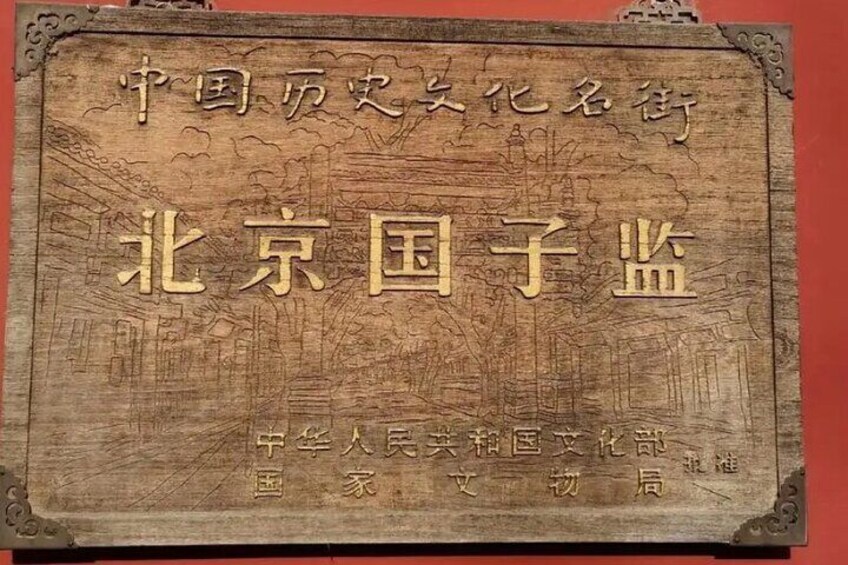 中国历史文化名街
北京国子监
中华人民共和国文化部
国家文物局
批准